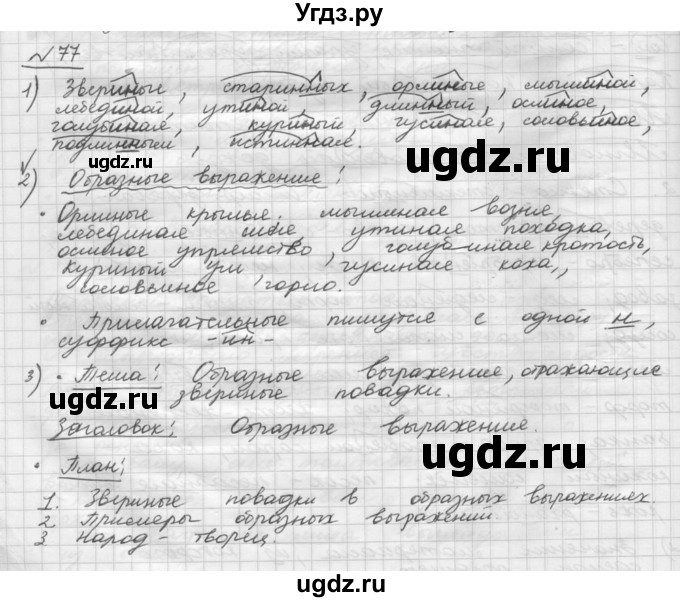 Угдз.ру
№ 77
1) Звериные, старинных, орлиные, мышиной,
лебединой, утиной, длинный, ослиное,
голубиная, куриный, гусиная, соловьиное,
подлинный, истинная.
2) Образные выражения:
• Орлиные крылья, мышиная возня,
лебединая шея, утиная походка,
ослиное упрямство, голубиная кротость,
куриный ум, гусиная кожа,
соловьиное горло.
• Прилагательные пишутся с одной н,
суффикс -ин-
3) • Тема: Образные выражения, отражающие
звериные повадки.
Заголовок: Образные выражения.
• План:
1. Звериные повадки в образных выражениях.
2. Примеры образных выражений.
3 Народ - творец.
ugdz.ru
ugdz.ru
ugdz.ru
ugdz.ru
ugdz.ru
ugdz.ru